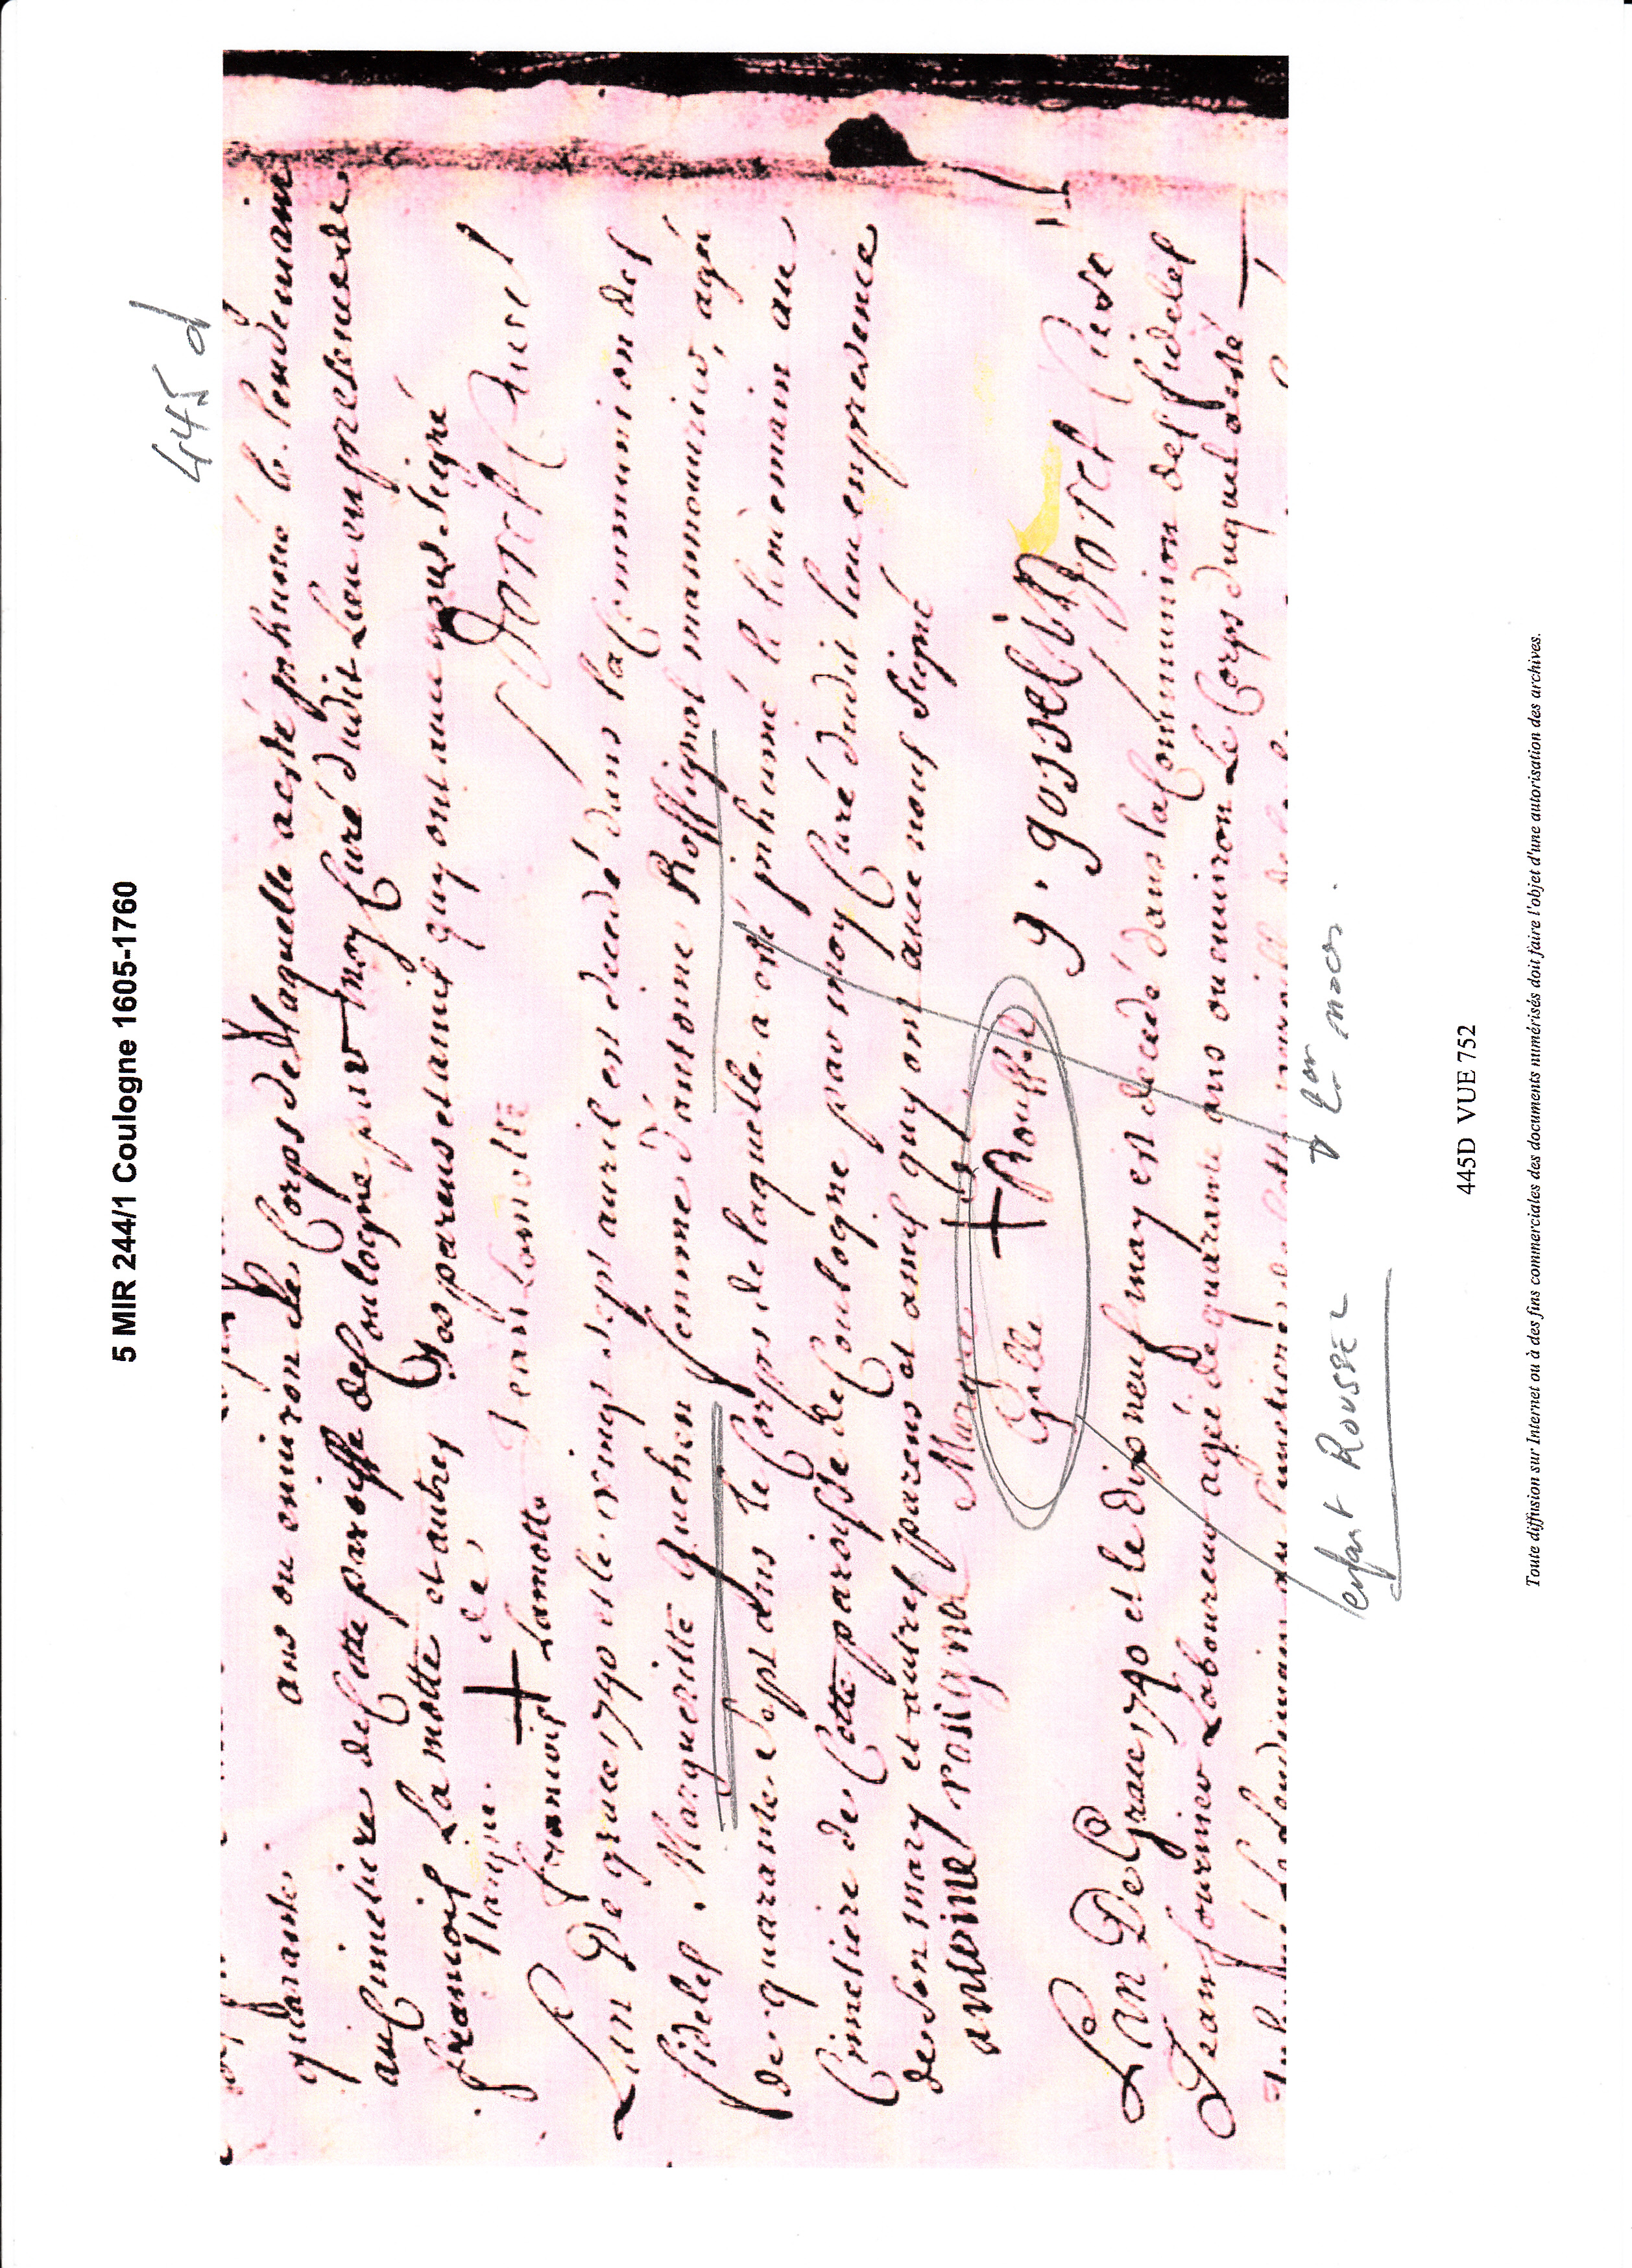 5 MIR 244/1 Coulogne 1605-1760
445 d
quarante ans ou environ Le Corps de Laquelle a esté inhumé le lendemain
au Cimetiere de Cette paroisse de Coulogne par moy Curé dudit Lieu en presence de
francois La motte et autres Ses parens et amis quy ont avec nous Signé
Marque de
francois + Lamotte Jean Lamotte Dorel Curé
L'an De grace 1740 et le vingt sept avril est decedé dans la Communion des
fidels. Margueritte quehen femme d'antoine Rossignol manouvrier, agé
de quarante sept ans le Corps de laquelle a esté inhumé le lendemain au
Cimetiere de Cette paroisse de Coulogne par moy Curé dudit lieu en presence
de son mary et autres parens et amis quy on avec nous Signé
antoine rosignol Marque
Gille + Roussel g. gosselin Dorel Curé
L'an De Grace 1740 et le dix neuf may est decedé dans la Communion des fidelel
Jean fournier Laboureur agé de quarante ans ou environ Le Corps duquel a esté
enfant ROUSSEL
445D VUE 752
Toute diffusion sur Internet ou à des fins commerciales des documents numérisés doit faire l'objet d'une autorisation des archives.